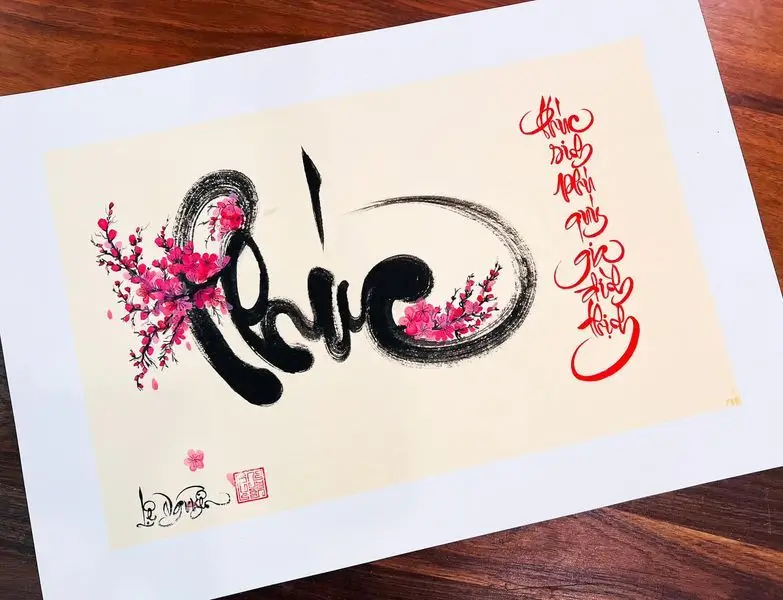 Phúc
Phúc
sinh
phú
quý
gia
đình
thịnh